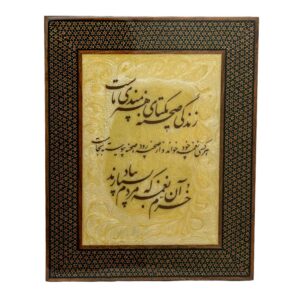 زندگی صحنه یکتای هنرمندی ماست
هر کسی نغمه خود خواند و از صحنه رود صحنه پیوسته بجاست
خرم آن نغمه که مردم بسپارند بیاد